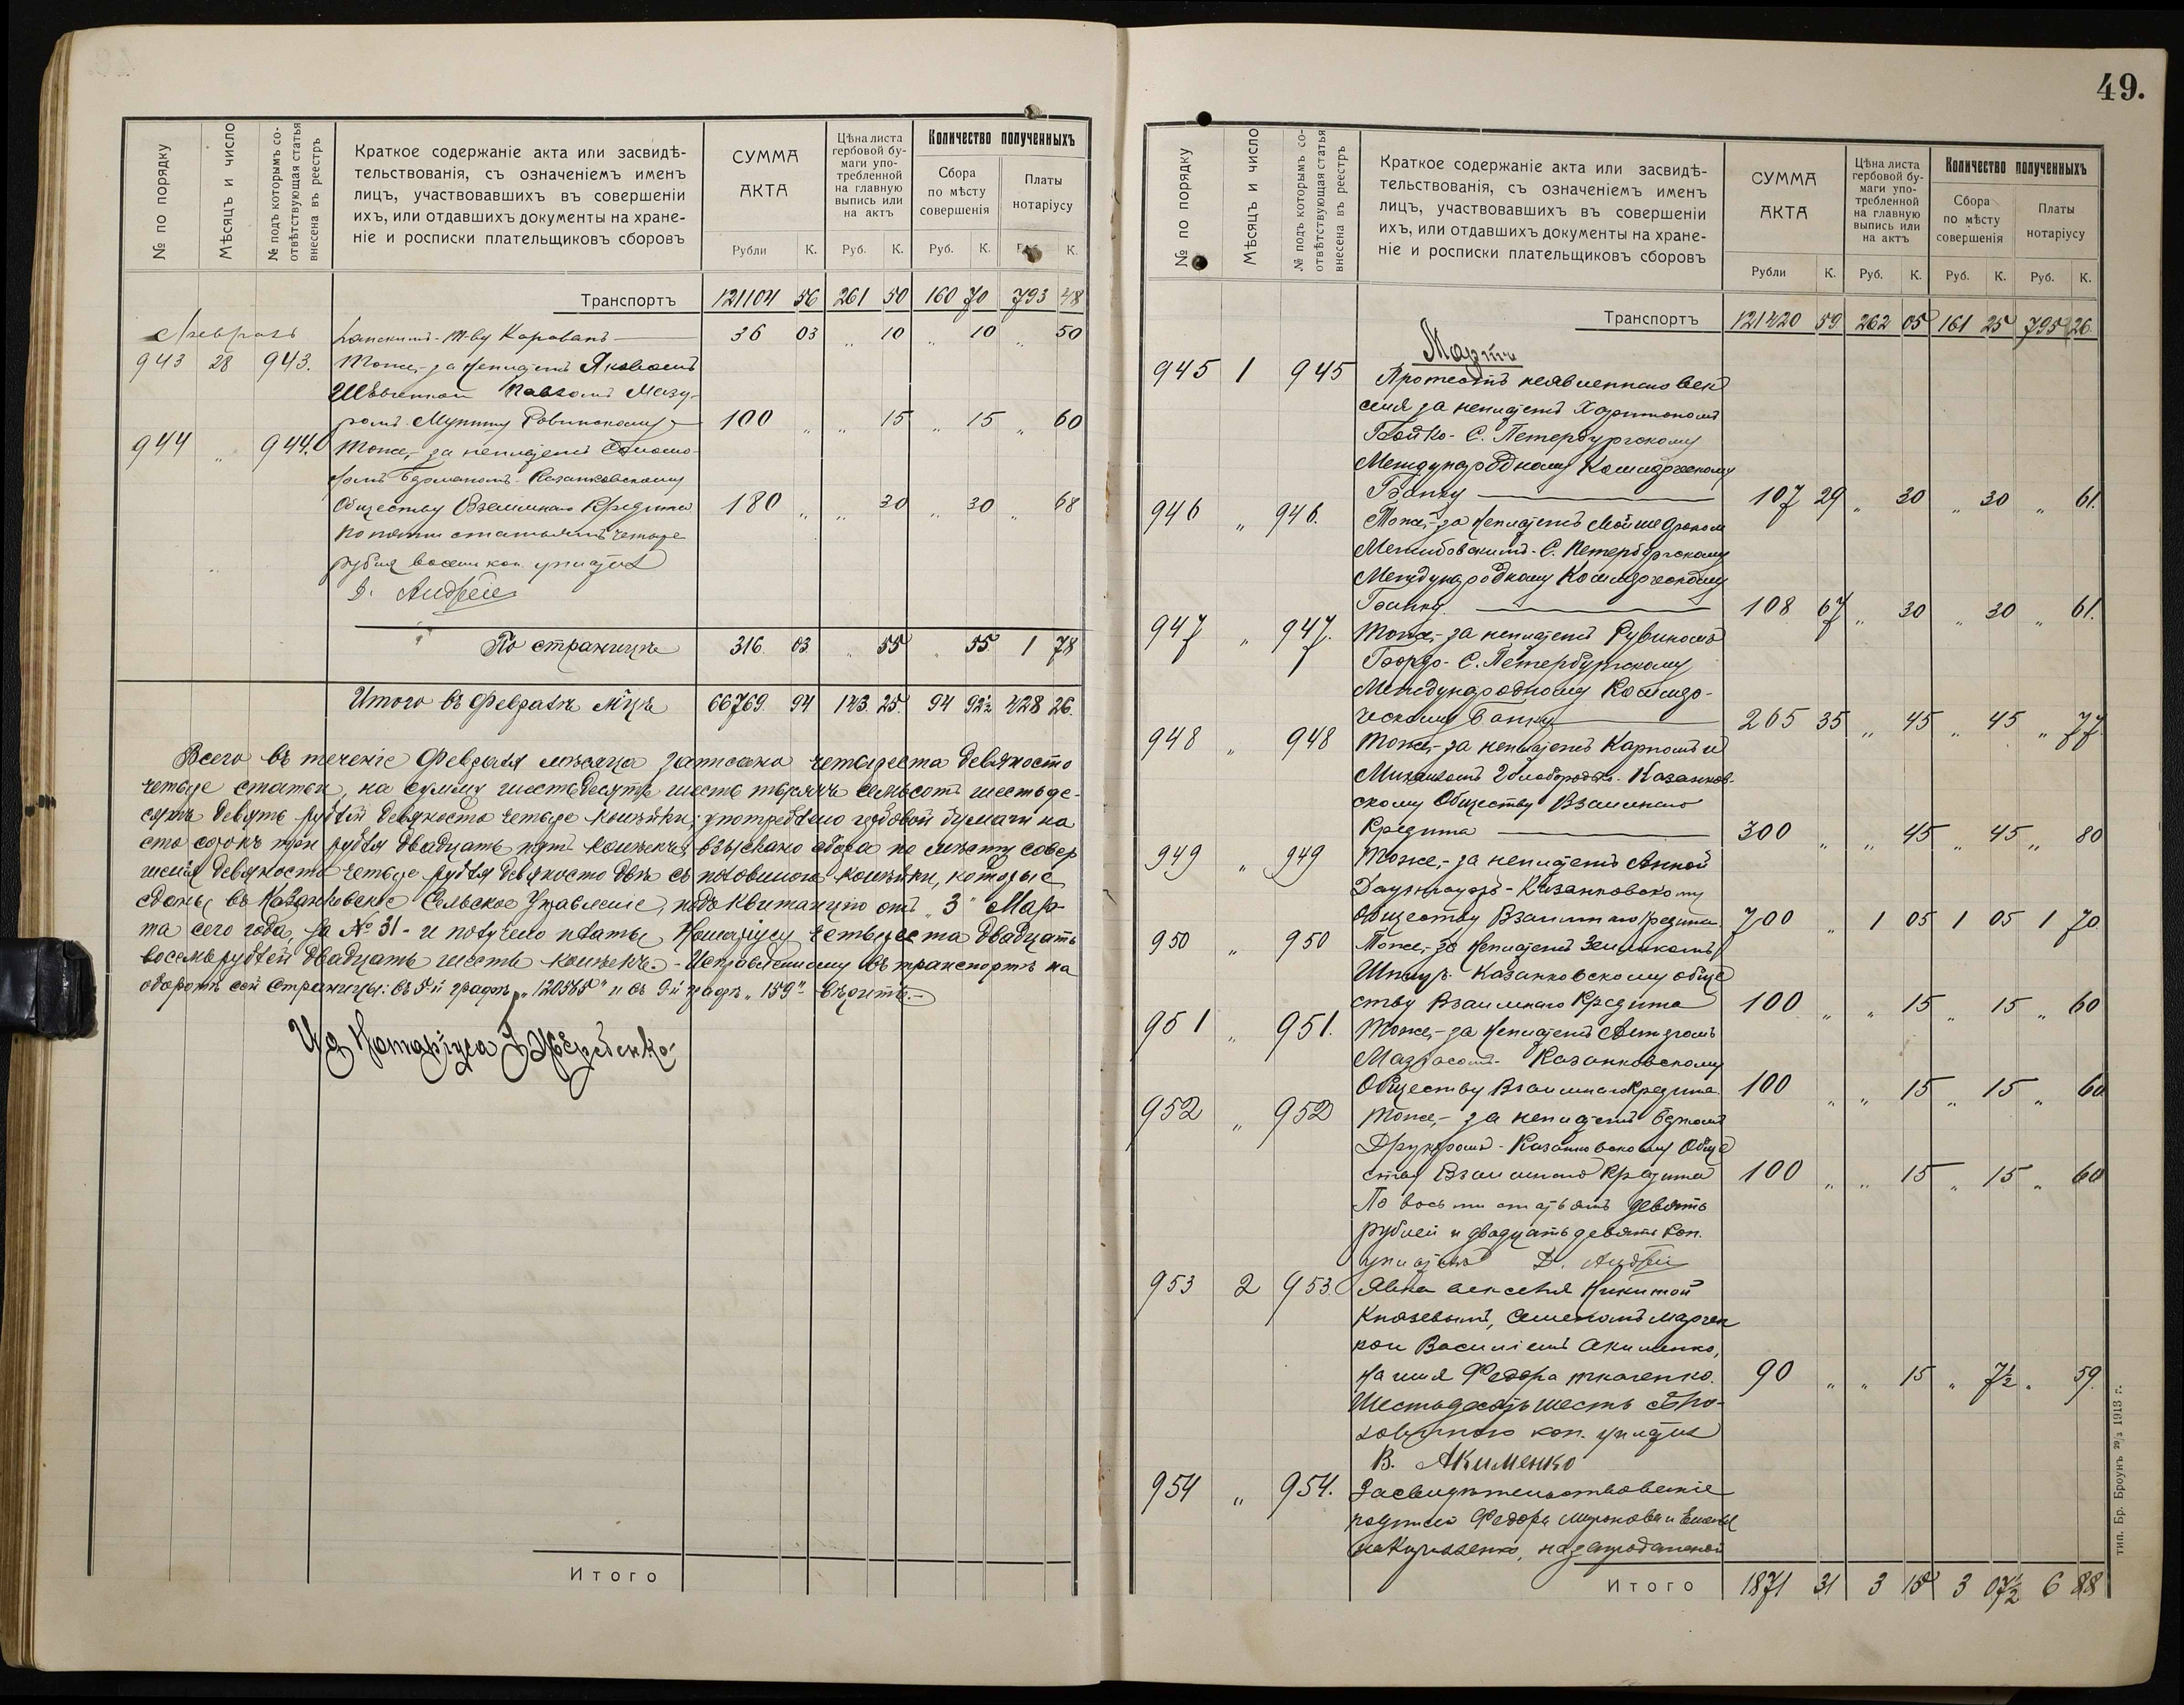 49.
№ по порядку
Мѣсяцъ и число
№ подъ которымъ со-
отвѣтствующая статья
внесена въ реестръ
Краткое содержаніе акта или засвидѣ-
тельствованія, съ означеніемъ именъ
лицъ, участвовавшихъ въ совершеніи
ихъ, или отдавшихъ документы на хране-
ніе и росписки плательщиковъ сборовъ
СУММА
АКТА
Рубли К.
Цѣна листа
гербовой бу-
маги упо-
требленной
на главную
выпись или
на актъ
Руб. К.
Количество полученныхъ
Сбора
по мѣсту
совершенія
Руб. К.
Платы
нотаріусу
К.
Транспортъ 121104 56 261 50 160 70 793 48
Февраль Т-ву Караванъ 36 03 " 10 " 10 " 50
943 28 943. Тоже,- за неплатежъ Яковомъ
Шевченкой Павломъ Мазу-
ромъ Ровинскому 100 " " 15 " 15 " 60
944 " 944. Тоже,- за неплатежъ
Казанковскому
Обществу Взаимнаго Кредита 180 " " 30 " 30 " 68
По статьямъ четыре
рубля восемь коп. уплатилъ
Д. Андрей
По страницѣ 316 03 " 55 " 55 1 78
Итого въ Февралѣ м-цѣ 66769. 94 143. 25. 94 92½ 428 26.
Всего въ теченіе Февраля мѣсяца записано четыреста девяносто
четыре статьи, на сумму шестьдесятъ шесть тысячъ семьсотъ шестьде-
сятъ девять рублей девяносто четыре копѣйки; употреблено гербовой бумаги на
сто сорокъ три рубля двадцать пять копѣекъ, взыскано сбора по мѣсту совер
шенія девяносто четыре рубля девяносто двѣ съ половиною копѣйки, которые
сданы въ Казанковское Сельское Управленіе, подъ квитанцію отъ „3" Мар-
та сего года, за № 31 - и получено платы Нотаріусу четыреста двадцать
восемь рублей двадцать шесть копѣекъ. - Исправленному въ транспортѣ на
оборотѣ сей страницы: въ 5й графѣ „120585" и въ 9й графѣ „159" вѣрить.-
И д Нотаріуса
Итого
№ по порядку
Мѣсяцъ и число
№ подъ которымъ со-
отвѣтствующая статья
внесена въ реестръ
Краткое содержаніе акта или засвидѣ-
тельствованія, съ означеніемъ именъ
лицъ, участвовавшихъ въ совершеніи
ихъ, или отдавшихъ документы на хране-
ніе и росписки плательщиковъ сборовъ
СУММА
АКТА
Рубли К.
Цѣна листа
гербовой бу-
маги упо-
требленной
на главную
выпись или
на актъ
Руб. К.
Количество полученныхъ
Сбора
по мѣсту
совершенія
Руб. К.
Платы
нотаріусу
Руб. К.
Транспортъ 121420 59 262 05 161 25 795 26.
Мартъ
945 1 945 Протестъ неявленнаго век
селя за неплатежъ Харитономъ
Бойко - С. Петербургскому
Международному Коммерческому
Банку 107 29 " 30 " 30 " 61.
946 " 946. Тоже,- за неплатежъ
С. Петербургскому
Международному Коммерческому
Банку. 108 67 " 30 " 30 " 61.
947 " 947. Тоже,- за неплатежъ Рувиномъ
С. Петербургскому
Международному Коммер-
ческому Банку 265 35 " 45 " 45 " 77.
948 " 948 Тоже,- за неплатежъ Карпомъ и
Михаиломъ Казанков-
скому Обществу Взаимнаго
Кредита 300 " " 45 " 45 " 80
949 " 949 Тоже,- за неплатежъ Анной
Казанковскому
Обществу Взаимнаго Кредита 700 " 1 05 1 05 1 70.
950 " 950 Тоже,- за неплатежъ
Шпицъ. Казанковскому Обще
ству Взаимнаго Кредита 100 " " 15 " 15 " 60
951 " 951. Тоже,- за неплатежъ
Казанковскому
Обществу Взаимнаго Кредита 100 " " 15 " 15 " 60
952 " 952 Тоже,- за неплатежъ
Казанковскому Обще
ству Взаимнаго Кредита 100 " " 15 " 15 " 60
По восьми статьямъ девять
рублей и двадцать девять коп.
уплатилъ Д. Андрей
953 2 953. Явка векселя Никитой
Князевымъ, Семеномъ Марчен
кои Василіемъ Акименко,
на имя Федора Ткаченко. 90 " " 15 " 7½ " 59.
Шестьдесятъ шесть съ по-
ловиною коп. уплатилъ
В. Акименко
954 " 954. Засвидѣтельствованіе
подписи Федора Миронова и
Итого 1871 31 3 15 3 07½ 6 88
тип. Бр. Броунъ 20/3 1913 г.